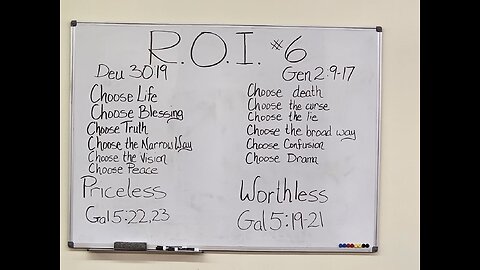 R.O.I. #6
Deu 30:19
Choose Life
Choose Blessing
Choose Truth
Choose the Narrow Way
Choose the Vision
Choose Peace
Priceless
Gal 5:22,23
Gen 2:9-17
Choose death
Choose the curse
Choose the lie
Choose the broad way
Choose Confusion
Choose Drama
Worthless
Gal 5:19-21